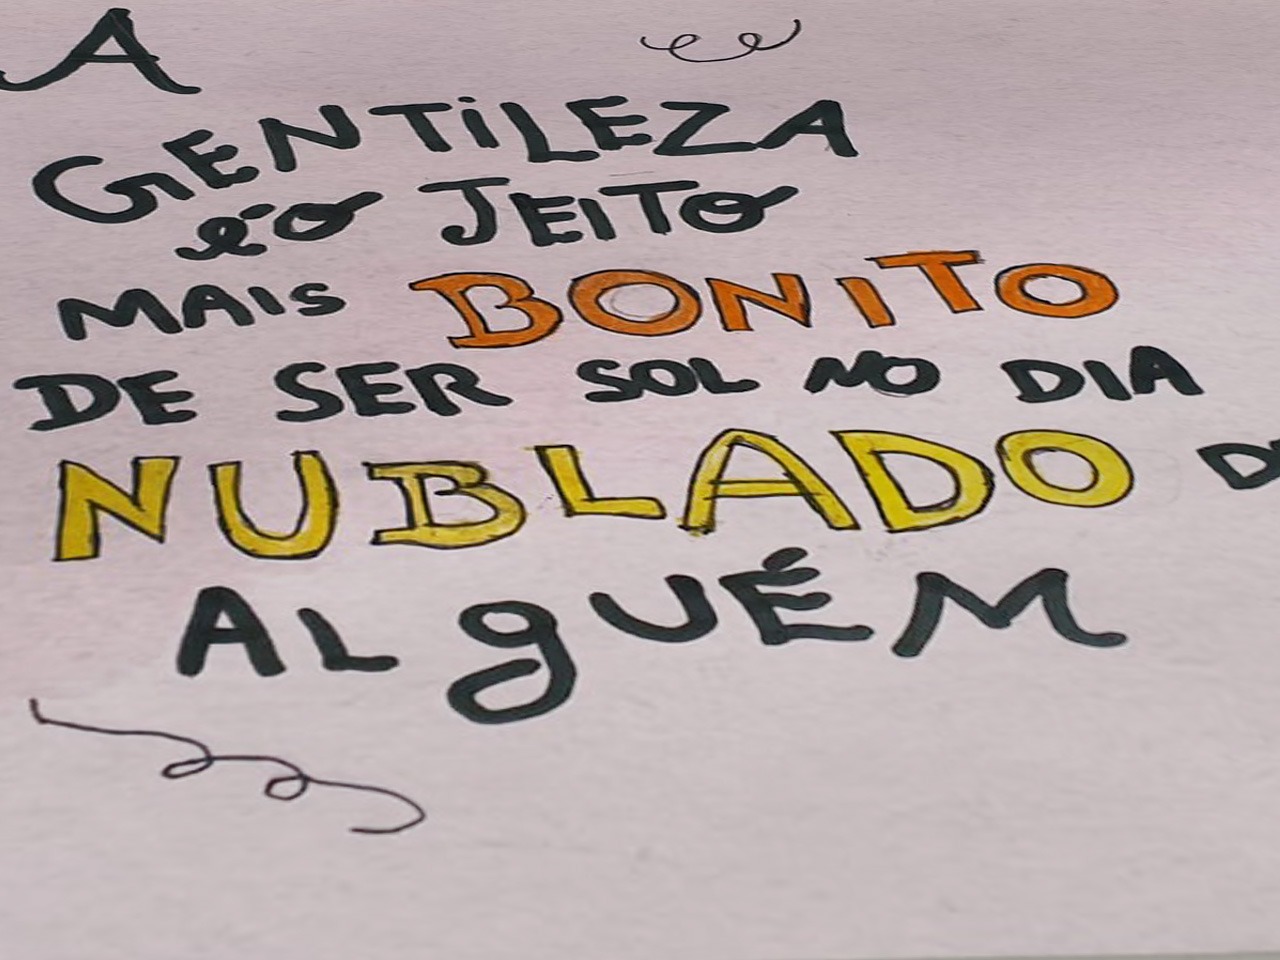 A
GENTILEZA
é o JEITO
MAIS BONITO
DE SER SOL NO DIA
NUBLADO
ALgUÉM